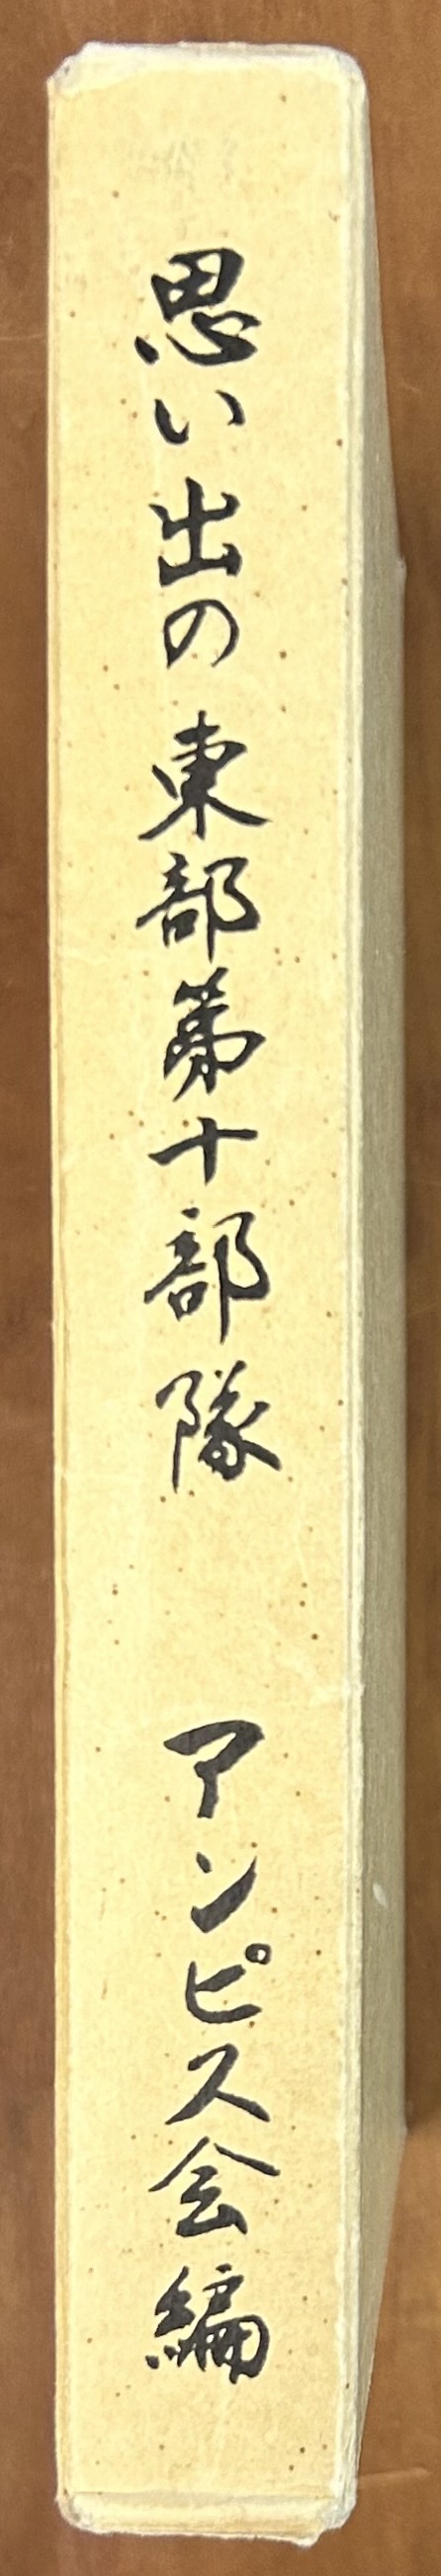 思い出の東部第十部隊　アンピス会編